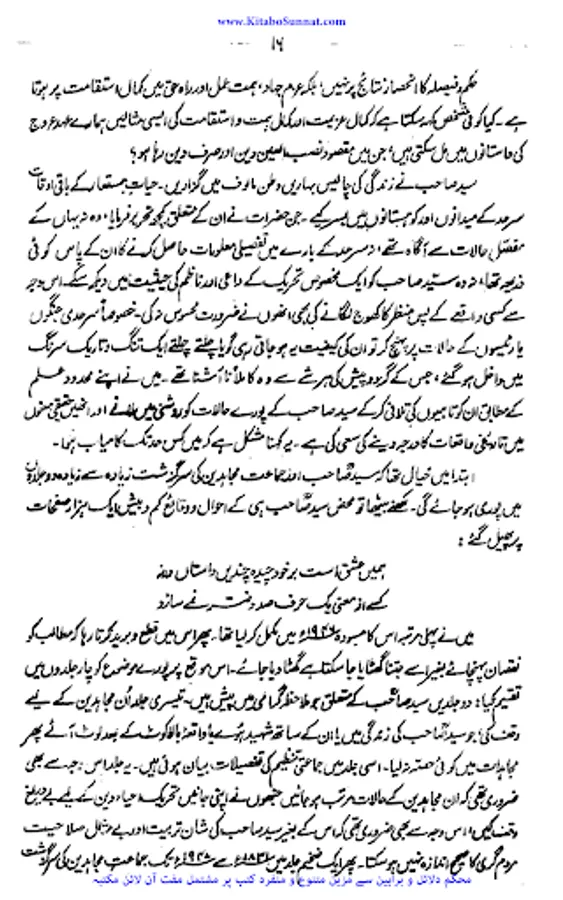 www.KitaboSunnat.com
۱۶
حکم و فیصلہ کا انحصار نتائج پر نہیں؛ بلکہ عزم جہاد، ہمت عمل اور راہ حق میں کمال استقامت پر ہوتا
ہے۔ کیا کوئی شخص کہہ سکتا ہے کہ کمال عزیمت اور کمال ہمت و استقامت کی ایسی مثالیں ہمارے عہد عروج
کی داستانوں میں مل سکتی ہیں؛ جن میں مقصود و نصب العین دین اور صرف دین رہا ہو؟
سید صاحب نے زندگی کی چالیس بہاریں وطن مالوف میں گزاریں۔ حیات مستعار کے باقی اوقات
سرحد کے میدانوں اور کوہستانوں میں بسر کیے۔ جن حضرات نے ان کے متعلق کچھ تحریر فرمایا، وہ نہ یہاں کے
مفصل حالات سے آگاہ تھے، نہ سرحد کے بارے میں تفصیلی معلومات حاصل کرنے کا ان کے پاس کوئی
ذریعہ تھا، نہ وہ سید صاحب کو ایک مخصوص تحریک کے داعی اور ناظم کی حیثیت میں دیکھ سکے۔ اس وجہ
سے کسی واقعے کے پس منظر کا کھوج لگانے کی بھی انھوں نے ضرورت محسوس نہ کی۔ خصوصاً سرحدی جنگوں
یا رئیسوں کے حالات پر پہنچ کر تو ان کی کیفیت یہ ہو جاتی رہی گویا چلتے چلتے ایک تنگ و تاریک سرنگ
میں داخل ہو گئے، جس کے گرد و پیش کی ہر شے سے وہ کاملاً نا آشنا تھے۔ میں نے اپنے محدود علم
کے مطابق ان کوتاہیوں کی تلافی کر کے سید صاحب کے پورے حالات کو روشنی میں لانے اور انھیں حقیقی معنوں
میں تاریخی واقعات کا درجہ دینے کی سعی کی ہے۔ یہ کہنا مشکل ہے کہ میں کس حد تک کامیاب ہوا۔
ابتدا میں خیال تھا کہ سید صاحب اور جماعت مجاہدین کی سرگزشت زیادہ سے زیادہ دو جلدوں
میں پوری ہو جائے گی۔ لکھنے بیٹھا تو محض سید صاحب ہی کے احوال و وقائع کم و بیش ایک ہزار صفحات
پر پھیل گئے:
ہمیں عشق است بر خود چیدہ چندیں داستاں ورنہ
کسے از معنی یک حرف صد دفتر نمے سازد
میں نے پہلی مرتبہ اس کا مسودہ میں مکمل کر لیا تھا۔ پھر اس میں قطع و برید کرتا رہا کہ مطالب کو
نقصان پہنچائے بغیر اسے جتنا گھٹایا جا سکتا ہے گھٹا دیا جائے۔ اس موقع پر پورے موضوع کو چار جلدوں میں
تقسیم کیا: دو جلدیں سید صاحب کے متعلق جو ملاحظۂ گرامی میں پیش ہیں۔ تیسری جلد ان مجاہدین کے لیے
وقف کی؛ جو سید صاحب کی زندگی میں یا ان کے ساتھ شہید ہوئے یا واقعۂ بالاکوٹ کے بعد لوٹ آئے پھر
مجاہدات میں کوئی حصہ نہ لیا۔ اسی جلد میں جماعتی تنظیم کی تفصیلات بیان ہوئی ہیں۔ یہ جلد اس وجہ سے بھی
ضروری تھی کہ ان مجاہدین کے حالات مرتب ہو جائیں جنھوں نے اپنی جانیں تحریک احیاء دین کے لیے بے دریغ
وقف کیں؛ اس وجہ سے بھی ضروری تھی کہ اس کے بغیر سید صاحب کی شان تربیت اور بے مثال صلاحیت
مردم گری کا صحیح اندازہ نہیں ہو سکتا۔ پھر ایک ضخیم جلد میں سے تک جماعت مجاہدین کی سرگزشت
محکم دلائل و براہین سے مزین متنوع و منفرد کتب پر مشتمل مفت آن لائن مکتبہ